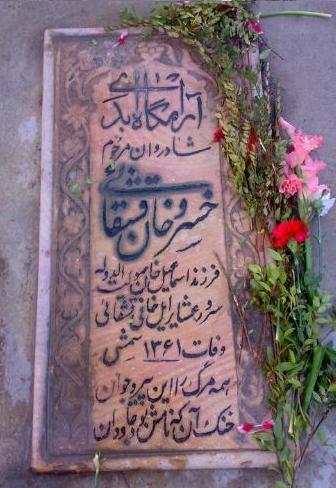 آرامگاه ابدی
شادروان مرحوم
خسرو خان قشقائی
فرزند اسماعیل خان صولت الدوله
سرور عشایر ایل خانی قشقائی
وفات ۱۳۶۱ شمسی
همه مرگ را این پیر و جوان
خنک آن که نامش بود جاودان